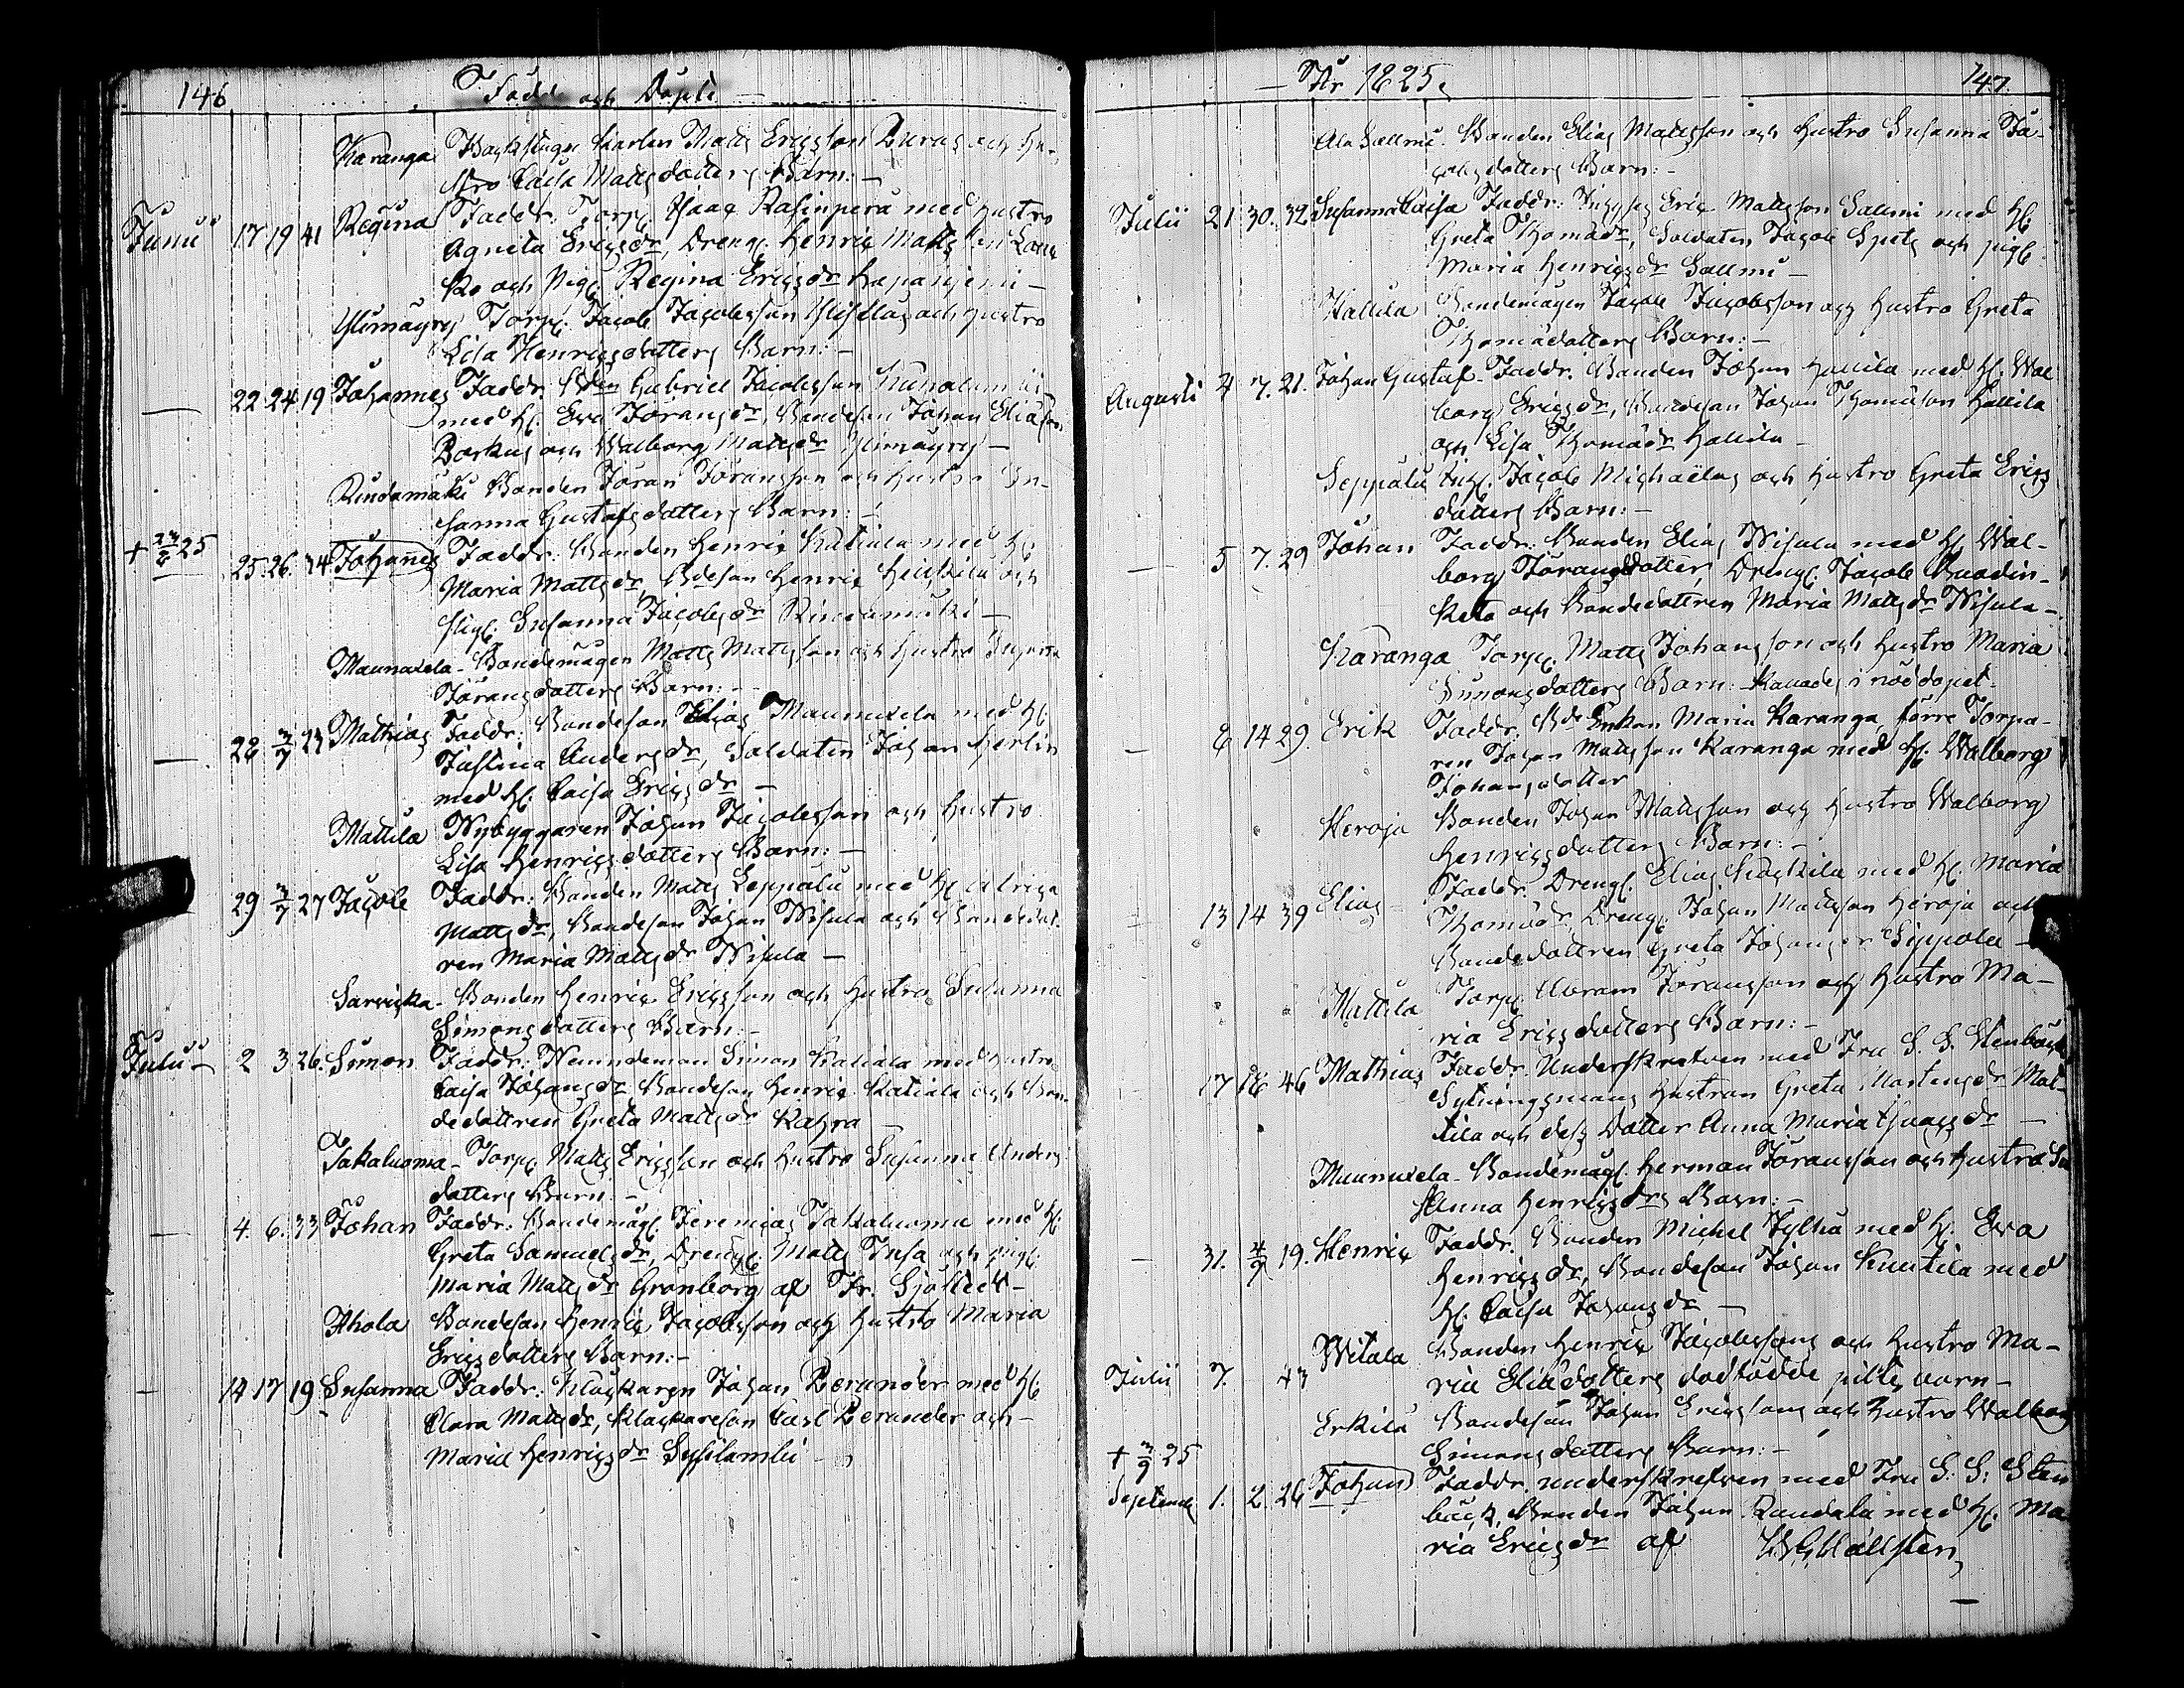 146 Födde och Döpte
Karanga Backstugu Karlen Matts Ericsson Burus och Hu-
stro Caisa Mattsdotters Barn:—
Junii 17 19 41 Regina Faddr: Torp. Isaac Rasinperä med Hustro
Agneta Ericsdr, Dreng. Henric Mattsson
ko och Pig. Regina Ericsdr Hapaniemi—
Ylimäyry Torp. Jacob Jacobsson och Hustro
Lisa Henricsdotters Barn:—
— 22 24 19 Johannes Faddr. Bden Gabriel Jacobsson
med H. Eva Jöransdr, Bondeson Johan Eliasson
och Walborg Mattsdr Ylimäyry—
Rindamäki Bonden Jöran Jöransson och Hustro Su-
sanna Gustafsdotters Barn:—
+ 23/8 25 25. 26. 34 Johannes Faddr: Bonden Henric Katiala med H.
Maria Mattsdr, Bdeson Henric och
Pig. Susanna Jacobsdr Rindamäki—
Maunuxela- Bondemågen Matts Mattsson och Hustro
Jöransdotters Barn:—
— 28 3/7 23 Mathias Faddr: Bondeson Elias Maunuxela med H.
Justina Andersdr, Soldaten Johan Herlin
med H. Caisa Ericsdr—
Mattila Nybyggaren Johan Jacobsson och Hustro
Lisa Henricsdotters Barn:—
29 3/7 27 Jacob Faddr: Bonden Matts Seppälä med H. Ulrica
Mattsdr, Bondeson Johan Nisula och Bondedot-
ren Maria Mattsdr Nisula—
Sarvicka- Bonden Henric Ericsson och Hustro Susanna
Simonsdotters Barn:—
Julii— 2 3 26. Simon Faddr: Nemndeman Simon Katiala med Hustro
Caisa Johansdr, Bondeson Henric Katiala och Bon-
dedottren Greta Mattsdr Kahra
Jakaluoma- Torp. Matts Ericsson och Hustro Susanna Anders
dotters Barn:—
— 4. 6. 33 Johan Faddr: Bondemåg. Jeremias Jakaluoma med H.
Greta Samuelsdr, Dreng. Matts och Pig.
Maria Mattsdr Grönborg af Fr. Sjöstedt—
Ahola Bondeson Henric Jacobsson och Hustro Maria
Ericsdotters Barn:—
— 14 17 19 Susanna Faddr: Klockaren Johan Berander med H.
Clara Mattsdr, Klockareson Carl Berander och—
Maria Henricsdr Syssilambi—
— År 1825. 147.
Ala Sallmi. Bonden Elias Mattsson och Hustro Susanna Ja-
cobsdotters Barn:—
Julii 21 30. 32 Susanna Caisa Faddr: Eric Mattsson Sallmi med H.
Greta Thomædr, Soldaten Jacob Spets och pig.
Maria Henricsdr Sallmi—
Hallila Bondemågen Jacob Jacobsson och Hustro Greta
Thomædotters Barn:—
Augusti 4 7. 21. Johan Gustaf- Faddr. Bonden Johan Hallila med H. Wal
borg Ericsdr, Bondeson Johan Thomæson Hallila
och Lisa Thomædr Hallila—
Seppälä Jacob Michaelas och Hustro Greta Erics
dotters Barn:—
— 5 7. 29 Johan Faddr: Bonden Elias Nisula med H. Wal-
borg Jöransdotter, Dreng. Jacob
keto och Bondedottren Maria Mattsdr Nisula—
Karanga Torp. Matts Johansson och Hustro Maria
Simonsdotters Barn:— kallades i nöddopet.
— 8 14 29. Erik Faddr. Bde Enkan Maria Karanga, förre Torpa-
ren Johan Mattsson Karanga med H. Walborg
Johansdotter
Heroja Bonden Johan Mattsson och Hustro Walborg
Henricsdotters Barn:—
— 13 14 39 Elias Faddr. Dreng. Elias med H. Maria
Thomædr, Dreng. Johan Mattsson Heroja och
Bondedottren Greta Johansdr Sippola—
Mattila Torp. Abram Jöransson och Hustro Ma—
ria Ericsdotters Barn:—
17 18 46 Mathias Faddr. Underskrefven med Fru S. S. Stenbäck
Sytningsmans Hustrun Greta Mårtensdr Mat-
tila och dess Dotter Anna Maria Isaacsdr—
Maunuxela- Bondemåg. Herman Jöransson och Hustro Su
sanna Henricsdrs Barn:—
— 31. 4/9 19. Henric Faddr. Bonden Michel Jylhä med H. Eva
Henricsdr, Bondeson Johan Kuntila med
H. Caisa Johansdr—
Julii 7. 43 Witala Bonden Henric Jacobssons och Hustro Ma—
ria Eliædotters dödfödde pilte barn—
Erkilä Bondeson Johan Ericssons och Hustro Walborg
Simonsdotters Barn:—
+ 3/9 25
Septemb 1. 2. 26 Johan Faddr. underskrefven med Fru S. S. Sten
bäck, Bonden Johan Randala med H. Ma
ria Ericsdr af W G Wallsten